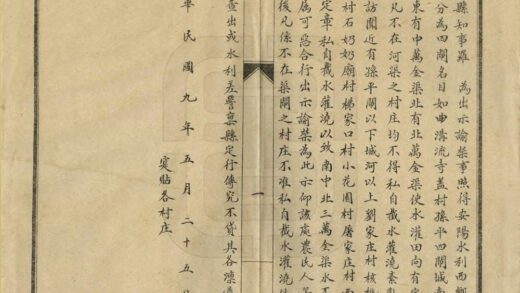 縣知事羅 為出示諭禁事照得安陽水利西鄉
分為四閘名目如曲溝流寺蓋村孫平四閘城
東有中萬金渠北有北萬金渠使水灌田向有定
凡不在河渠之村庄均不得私自截水灌澆紊
訪聞近有孫平閘以下城河以上劉家庄村核桃
村石奶奶廟村梯家口村小花園村屠家庄村西
定章私自截水灌澆以致南中北三萬金渠水不
屬可惡合行出示諭禁為此示仰該處農民人等
後凡係不在渠閘之村庄不准私自截水灌澆
一
查出或水利差警稟縣定行傳究不貸其各凜遵
華民國九年五月二十五日
實貼各村庄